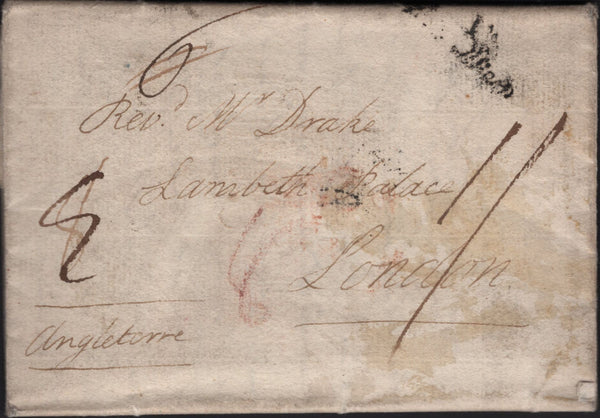 6
Rev.d Mr Drake
Lambeth Palace
London
Angleterre